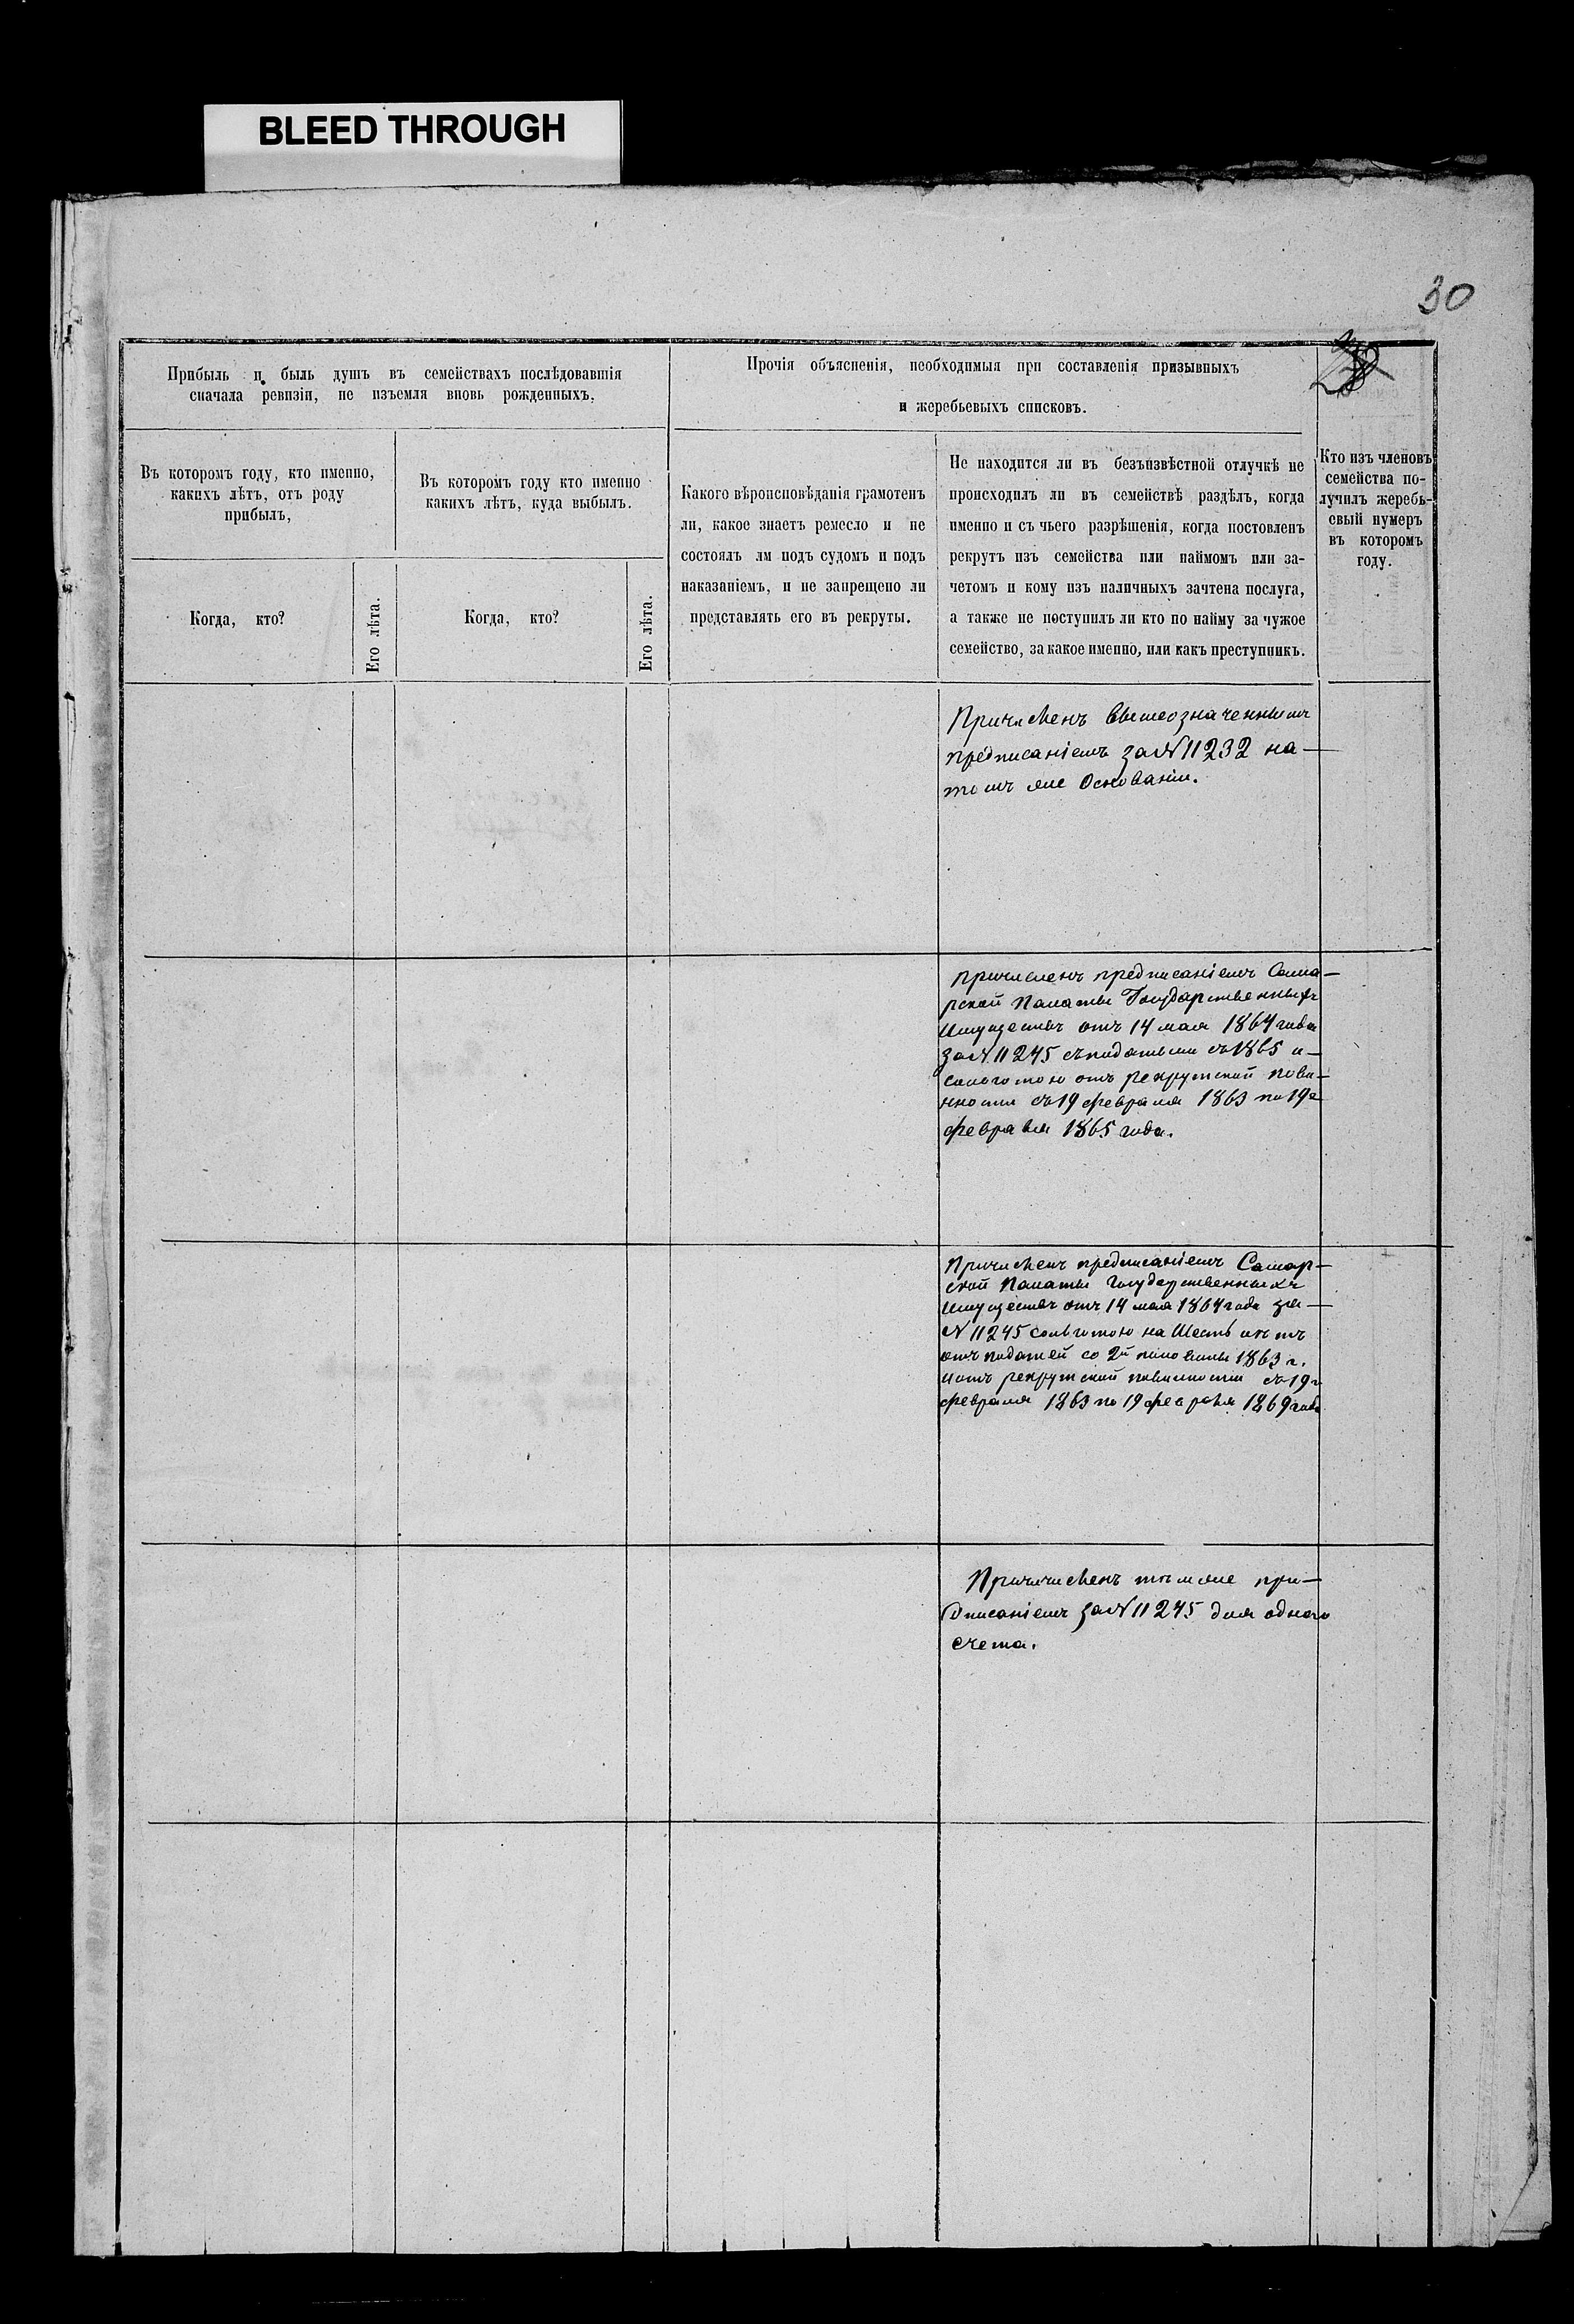 BLEED THROUGH
30
Прибыль и быль душъ въ семействахъ послѣдовавшія
сначала ревизіи, не изъемля вновь рожденныхъ.
Прочія объясненія, необходимыя при составленія призывныхъ
и жеребьевыхъ списковъ.
Въ которомъ году, кто именно,
какихъ лѣтъ, отъ роду
прибылъ,
Въ которомъ году кто именно
какихъ лѣтъ, куда выбылъ.
Когда, кто?
Его лѣта.
Когда, кто?
Его лѣта.
Какого вѣроисповѣданія грамотенъ
ли, какое знаетъ ремесло и не
состоялъ лм подъ судомъ и подъ
наказаніемъ, и не запрещено ли
представлять его въ рекруты.
Не находится ли въ безъизвѣстной отлучкѣ не
происходилъ ли въ семействѣ раздѣлъ, когда
именно и съ чьего разрѣшенія, когда постовленъ
рекрутъ изъ семейства или наймомъ или за-
четомъ и кому изъ наличныхъ зачтена послуга,
а также не поступилъ ли кто по найму за чужое
семейство, за какое именно, или какъ преступникъ.
Кто изъ членовъ
семейства по-
лучилъ жеребь-
евый нумеръ
въ которомъ
году.
Причисленъ вышеозначеннымъ
предписаніемъ за № 11232 на
томъ же Основаніи.
причисленъ предписаніемъ Сама-
рской Палаты Государственныхъ
Имуществъ отъ 14 мая 1864 года
за № 11245 съ податьми съ 1865 и
сльготою отъ рекрутской пови-
нности съ 19 февраля 1863 по 19е
февраля 1865 года.
Причисленъ предписаніемъ Самар-
ской Палаты Государственныхъ
Имуществъ отъ 14 мая 1864 года за
№ 11245 сольготою на Шесть лѣтъ
отъ податей со 2й половины 1863 г.
и отъ рекрутской повинности съ 19
февраля 1863 по 19 февраля 1869 года
Причисленъ тѣмже пре-
дписаніемъ за № 11245 для одного
счета.